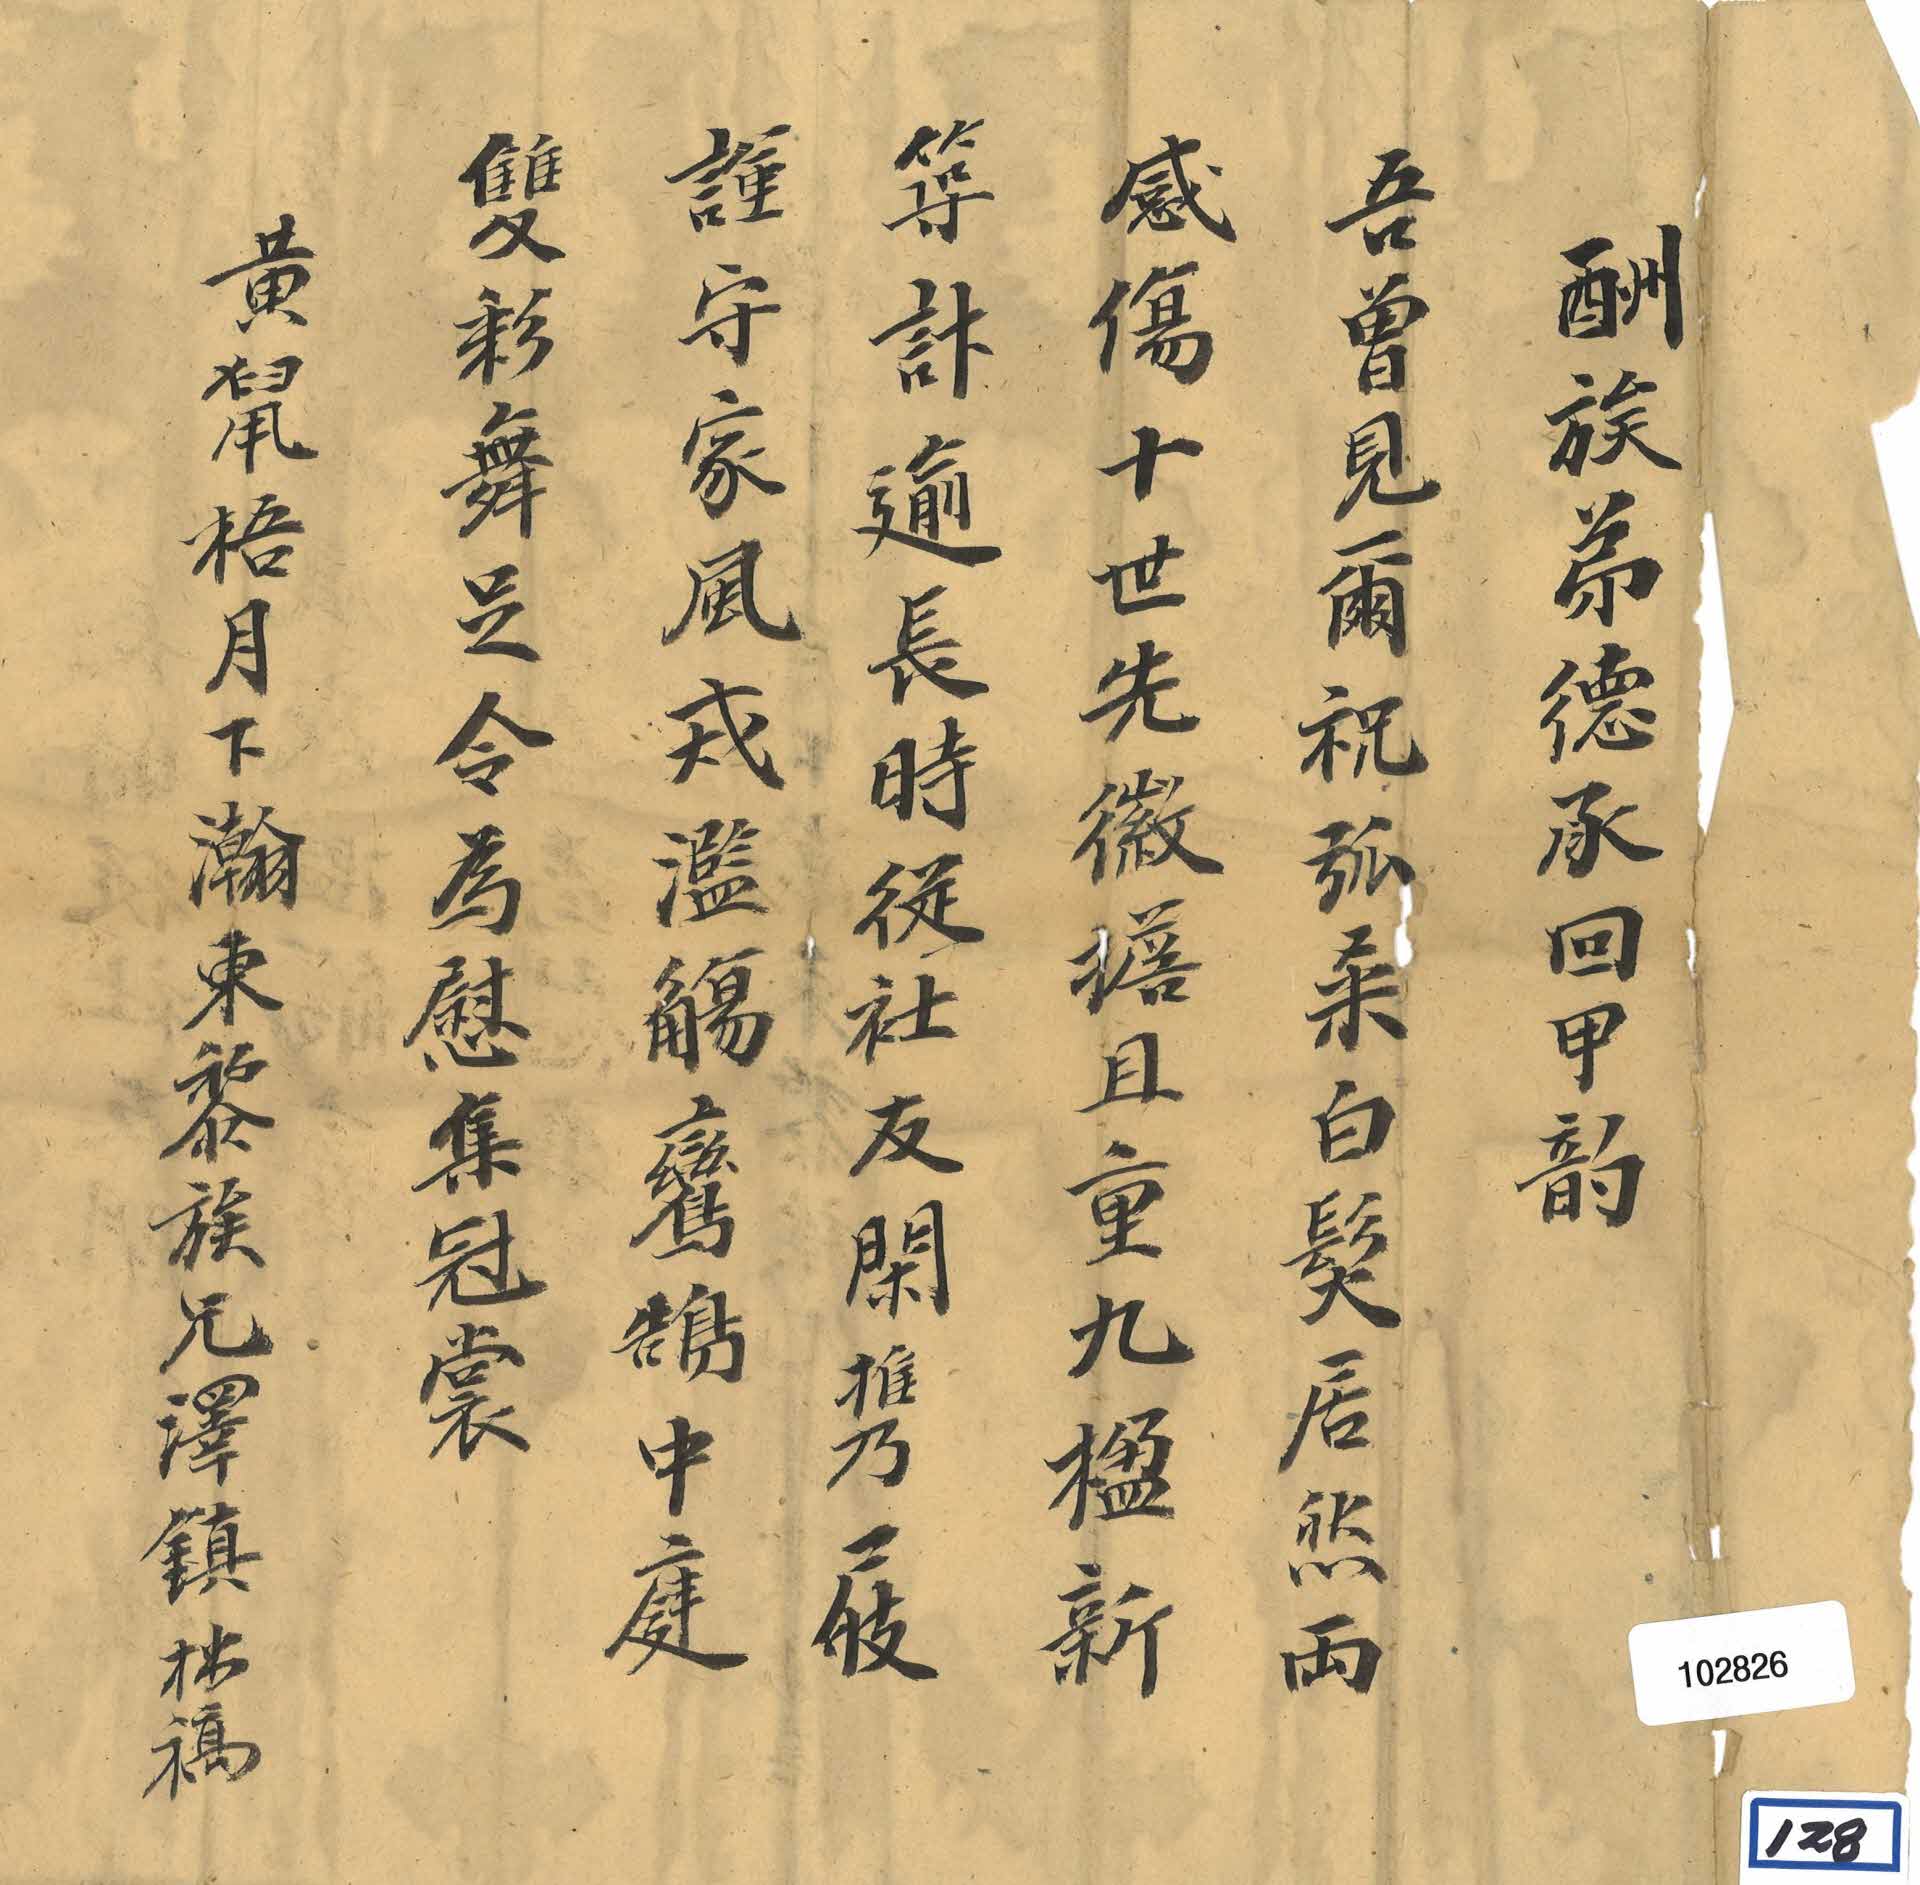 酬族弟德承回甲韵
吾曾見爾祝弧桑白髮居然両
感傷十世先徽擔且重九楹新
等計逾長時從社友閑携屐
謹守家風戒濫觴鸞鵠中庭
雙彩舞足令為慰集冠裳
黄鼠梧月下瀚東黎族兄澤鎮拙稿
102826
128